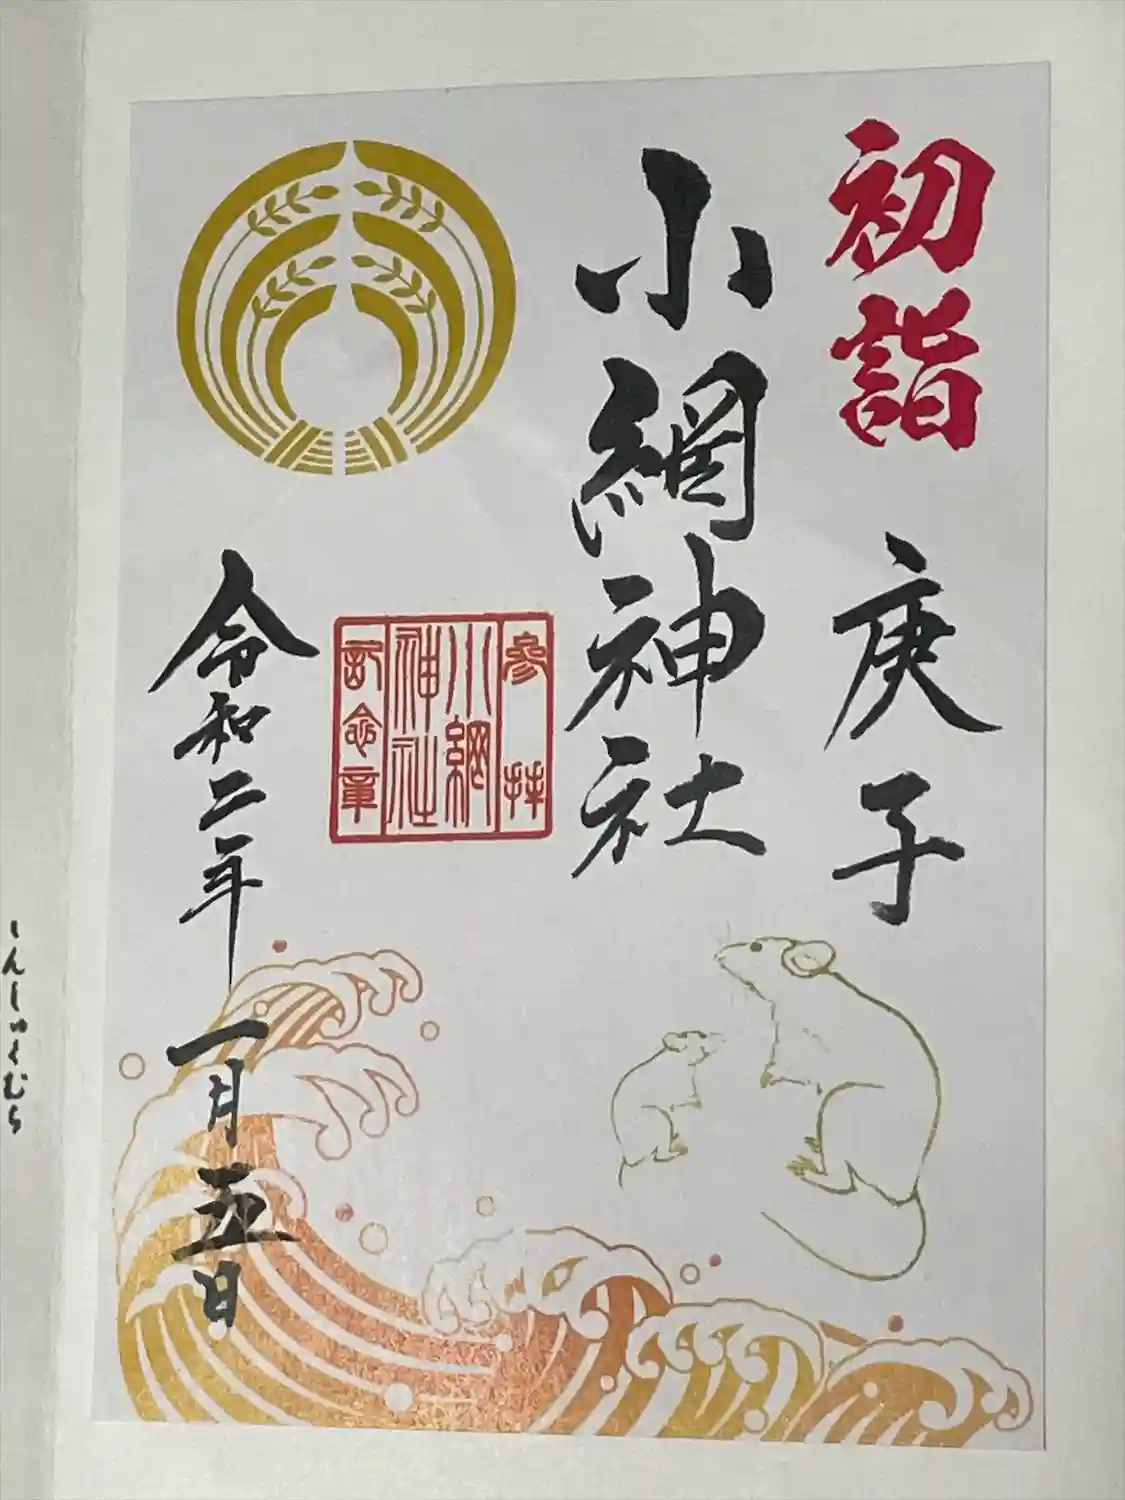 初詣
庚子
小網神社
参拝
小網
神社
記念章
令和二年
一月五日
しんしゅくむら